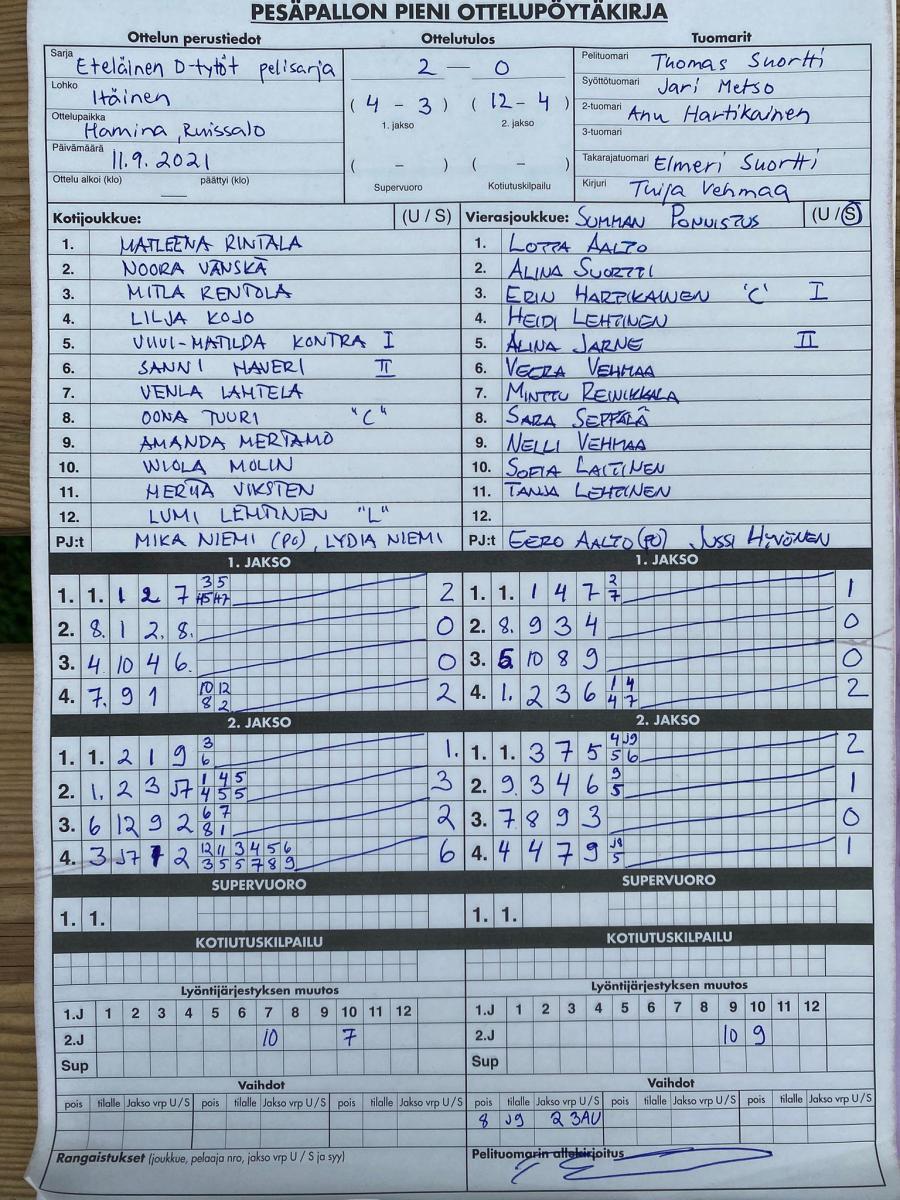 PESÄPALLON PIENI OTTELUPÖYTÄKIRJA
Ottelun perustiedot
Sarja Eteläinen D-tytöt pelisarja
Lohko Itäinen
Ottelupaikka Hamina, Ruissalo
Päivämäärä 11.9.2021
Ottelu alkoi (klo) — päättyi (klo)
Ottelutulos
2 — 0
( 4 - 3 ) ( 12 - 4 )
1. jakso 2. jakso
( - ) ( - )
Supervuoro Kotiutuskilpailu
Tuomarit
Pelituomari Thomas Suortti
Syöttötuomari Jari Metso
2-tuomari Anu Hartikainen
3-tuomari
Takarajatuomari Elmeri Suortti
Kirjuri Tuija Vehmaa
Kotijoukkue: (U / S)
1. MATLEENA RINTALA
2. NOORA VÄNSKÄ
3. MILLA RENTOLA
4. LILJA KOJO
5. VIIVI-MATILDA KONTRA I
6. SANNI HAVERI II
7. VENLA LAHTELA
8. OONA TUURI "C"
9. AMANDA MERTAMO
10. WIOLA MOLIN
11. VIKSTEN
12. LUMI LEHTINEN "L"
PJ:t MIKA NIEMI (PO), LYDIA NIEMI
Vierasjoukkue: SUMMAN PONNISTUS (U / S)
1. LOTTA AALTO
2. ALINA SUORTTI
3. ERIN HARTIKAINEN "C" I
4. HEIDI LEHTINEN
5. ALINA JARNE II
6. VEERA VEHMAA
7. MINTTU REINIKKALA
8. SARA SEPPÄLÄ
9. NELLI VEHMAA
10. SOFIA LAITINEN
11. TANJA LEHTINEN
12.
PJ:t EERO AALTO (PO) JUSSI HYVÖNEN
1. JAKSO
1. 1. 1 2 7 3 5 2
2. 8. 1 2. 8. 0
3. 4 10 4 6. 0
4. 7. 9 1 10 12 2
8 2
1. JAKSO
1. 1. 1 4 7 2 1
7
2. 8. 9 3 4 0
3. 5. 10 8 9 0
4. 1. 2 3 6 1 4 2
4 7
2. JAKSO
1. 1. 2 1 9 3 1.
6
2. 1. 2 3 J7 1 4 5 3
4 5 5
3. 6 12 9 2 6 7 2
8 1
4. 3 J7 1 2 12 11 3 4 5 6 6
3 5 5 7 8 9
2. JAKSO
1. 1. 3 7 5 4 J9 2
5 6
2. 9. 3 4 6 9 1
5
3. 7 8 9 3 0
4. 4 4 7 9 J8 1
5
SUPERVUORO
1. 1.
SUPERVUORO
1. 1.
KOTIUTUSKILPAILU
KOTIUTUSKILPAILU
Lyöntijärjestyksen muutos
1.J 1 2 3 4 5 6 7 8 9 10 11 12
2.J 10 7
Sup
Lyöntijärjestyksen muutos
1.J 1 2 3 4 5 6 7 8 9 10 11 12
2.J 10 9
Sup
Vaihdot
pois tilalle Jakso vrp U / S pois tilalle Jakso vrp U / S pois tilalle Jakso vrp U / S
Vaihdot
pois tilalle Jakso vrp U / S pois tilalle Jakso vrp U / S pois tilalle Jakso vrp U / S
8 J9 2 3AU
Rangaistukset (joukkue, pelaaja nro, jakso vrp U / S ja syy)
Pelituomarin allekirjoitus